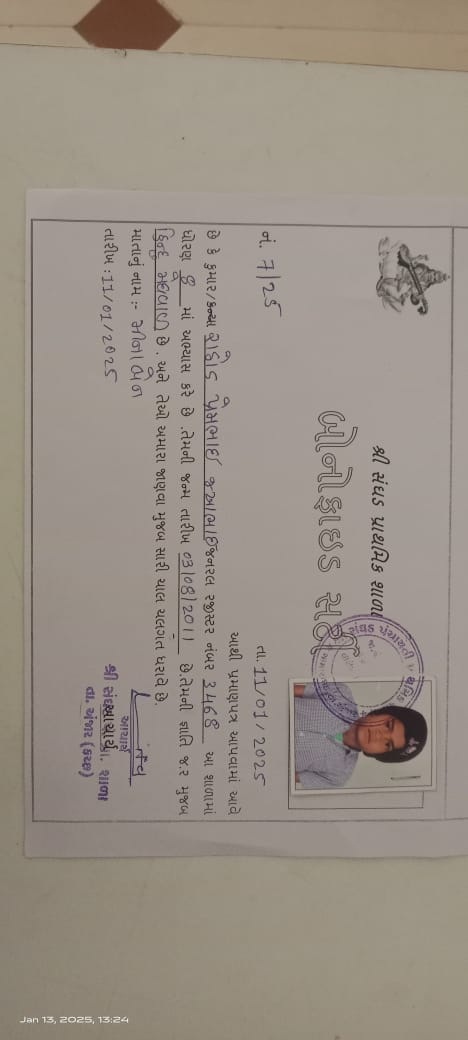 શ્રી સંઘડ પ્રાથમિક શાળા
બોનોફાઇડ સર્ટી
નં. 7/25
તા. 11/01/2025
આથી પ્રમાણપત્ર આપવામાં આવે
છે કે કુમાર/કન્યા રાઠોડ પ્રેમભાઇ જનરલ રજીસ્ટર નંબર 3468 આ શાળામાં
ધોરણ 8 માં અભ્યાસ કરે છે .તેમની જન્મ તારીખ 03/08/2011 છે.તેમની જ્ઞાતિ જ.ર મુજબ
હિન્દુ છે . અને તેઓ અમારા જાણવા મુજબ સારી ચાલ ચલગત ધરાવે છે.
માતાનું નામ :- મીનાબેન
તારીખ : 11/01/2025
આચાર્ય
આચાર્ય
શ્રી સંઘડ પ્રા. શાળા
તા. અંજાર (કચ્છ)
Jan 13, 2025, 13:24